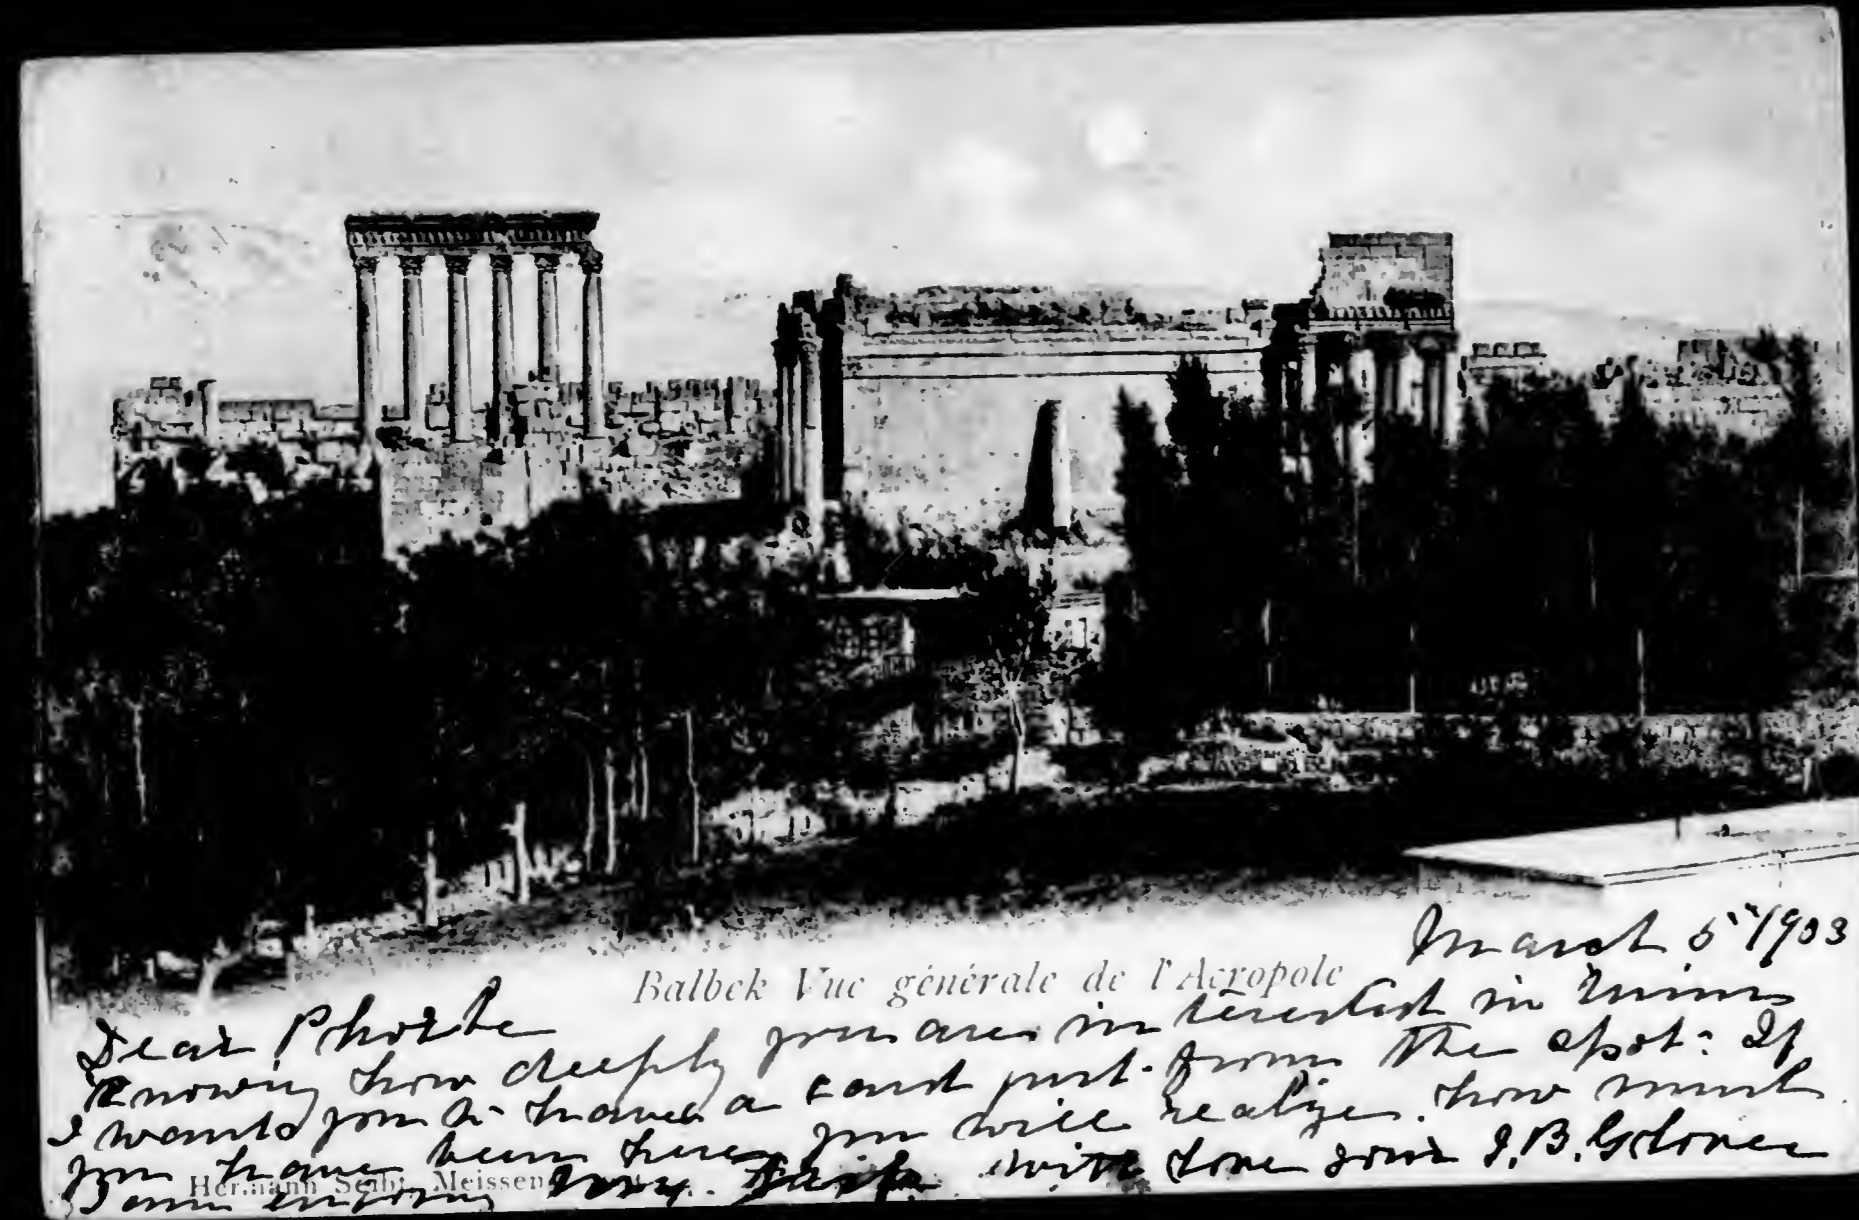 March 5" 1903
Balbek Vue générale de l'Acropole
Dear Phoebe
Knowing how deeply you are interested in ruins
I want you to have a card just from the spot. If
you have been here you will realize how much
I am enjoying my with love your I.B.
Hermann Seibt, Meissen